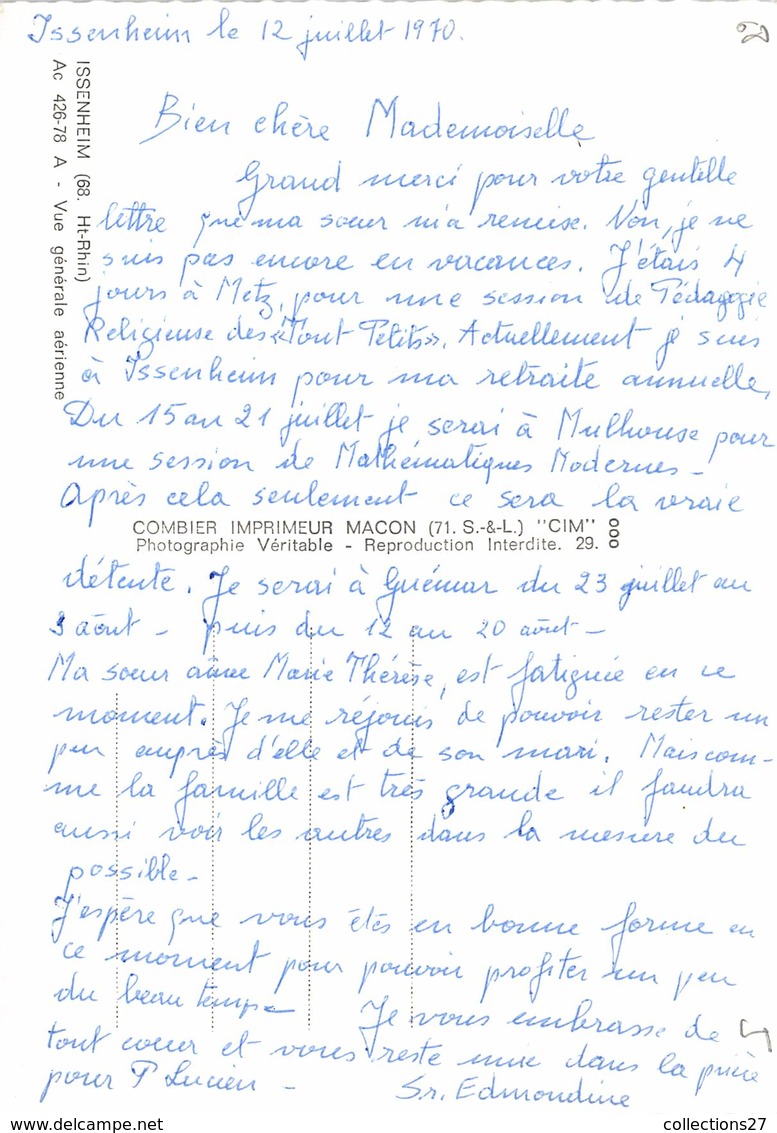 Issenheim le 12 juillet 1970.
ISSENHEIM (68. Ht-Rhin)
Ac 426-78 A - Vue générale aérienne
Bien chère Mademoiselle
Grand merci pour votre gentille
lettre que ma sœur m'a remise. Non, je ne
suis pas encore en vacances. J'étais 4
jours à Metz, pour une session de Pédagogie
Religieuse des «Tout Petits». Actuellement je suis
à Issenheim pour ma retraite annuelle,
Du 15 au 21 juillet je serai à Mulhouse pour
une session de Mathématiques Modernes -
Après cela seulement ce sera la vraie
COMBIER IMPRIMEUR MACON (71. S.-&-L.) "CIM"
Photographie Véritable - Reproduction Interdite. 29.
détente. Je serai à Guémar du 23 juillet au
3 août - puis du 12 au 20 août -
Ma sœur aînée Marie Thérèse, est fatiguée en ce
moment. Je me réjouis de pouvoir rester un
peu auprès d'elle et de son mari. Mais com-
me la famille est très grande il faudra
aussi voir les autres dans la mesure du
possible -
J'espère que vous êtes en bonne forme en
ce moment pour pouvoir profiter un peu
du beau temps - Je vous embrasse de
tout cœur et vous reste unie dans la prière
pour P Lucien -
Sr. Edmondine
collections27